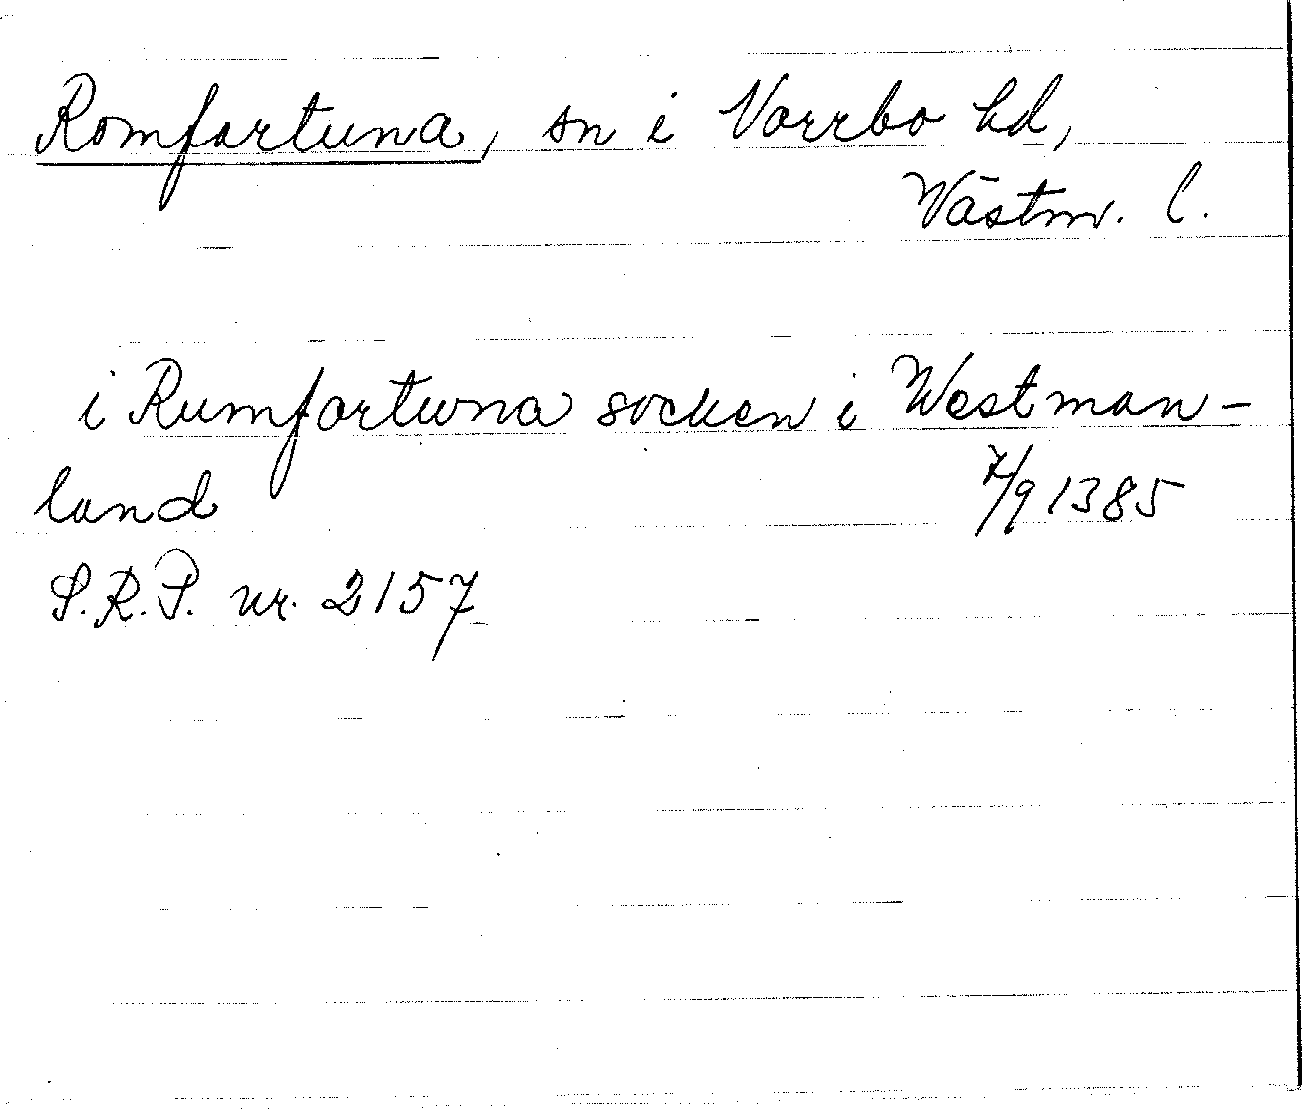 Romfartuna, sn i Norrbo hd,
Västm. l.
i Rumfartuna socken i Westman-
land 7/9 1385
S.R.P. nr. 2157